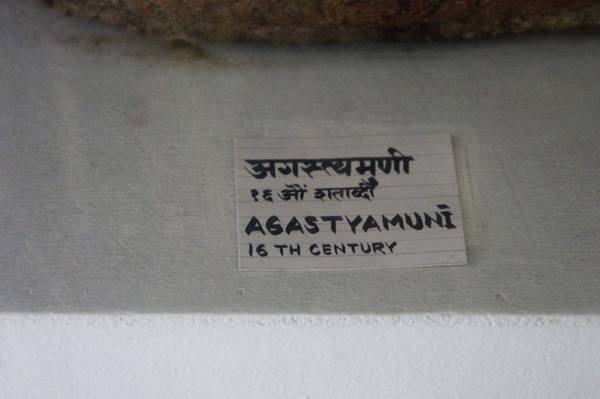 अगस्त्यमुणी
१६ औं शताब्दी
AGASTYAMUNĪ
16 TH CENTURY